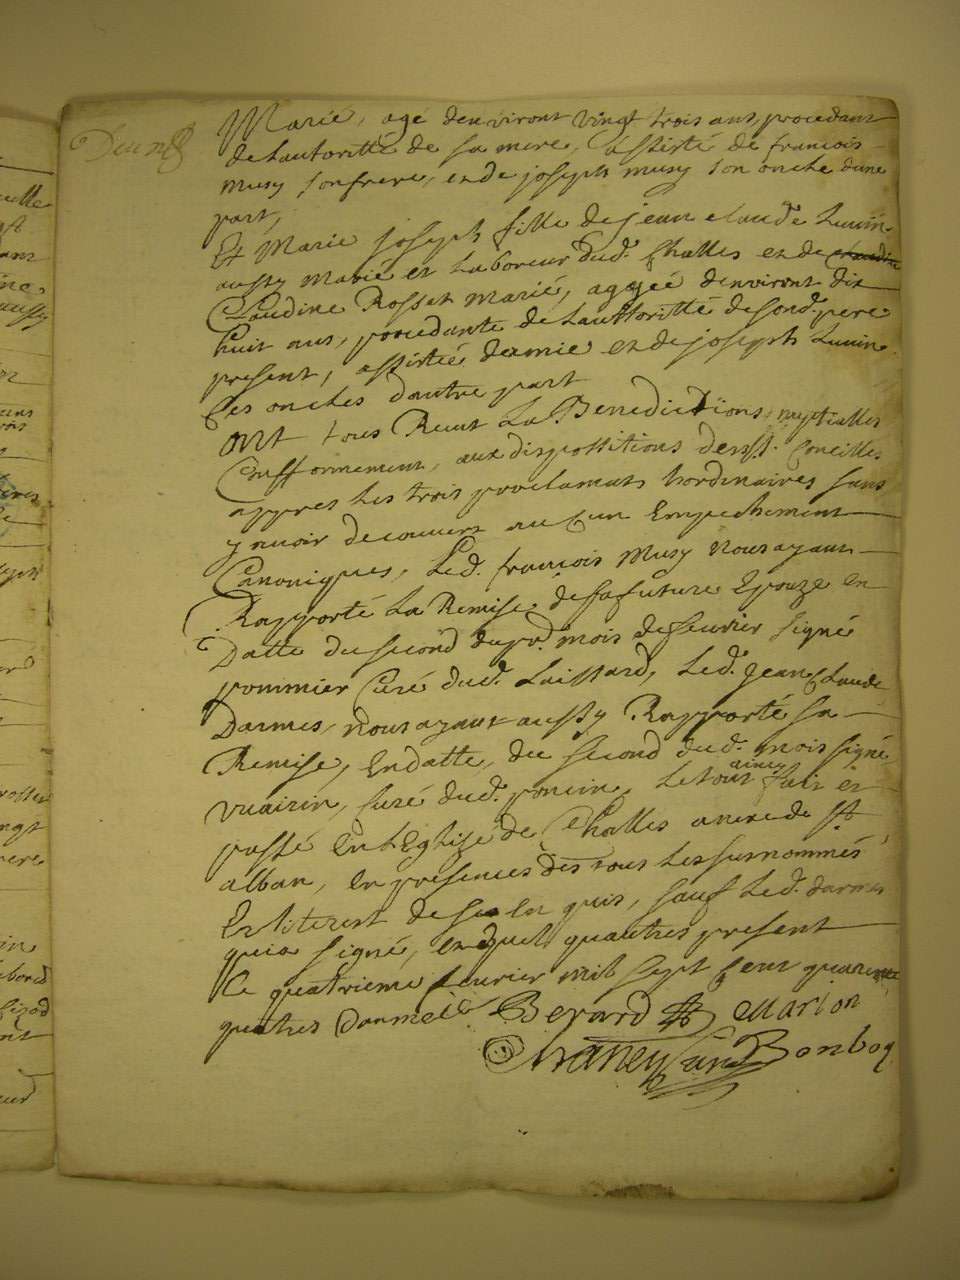 Marié, agé denviront vingt trois ans, procedant
de Lautoritté de sa mere, assisté de francois
musy sonfrere, et de joseph musy son oncle dune
part,
Et Marie joseph fille de jean claude Luvin
aussy marié et Laboreur dud. Challes et de claudine
Claudine Rosset marié, aggée denviront dix
huit ans, procedante de Lauttoritté de sond. pere
present, assistée et de joseph Luvin
ses oncles dautre part
ont tous Reçut La Benedictions nuptialles
Confformement, aux dispossitions des st. Concilles
appres Les trois proclamats hordinaires sans
y avoir decouvert aucun Empechement
Canoniques, Led. francois Musy nous ayant
Rapporté La Remise de sa future Epouze en
Datte du second dud. mois de feuvrier signé
pommier Curé dud. Laissard, Led. Jean Claude
Darmes, nous ayant aussy Rapporté sa
Remise, En datte, du second dud. mois signé
curé dud. poncin, Le tout ainsy fait et
passé En L'Eglise de Challes anexe de st
alban, En presences des tous Les surnommés
Et de ce En quis, sauf Led. darmes
qui a signé, present
Ce quatrieme feuvrier mil sept Cent quarante
quatres Darmes Berard Marion
Bonboq